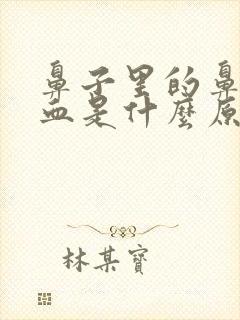 鼻子里的鼻
血是什麼原
林某寶